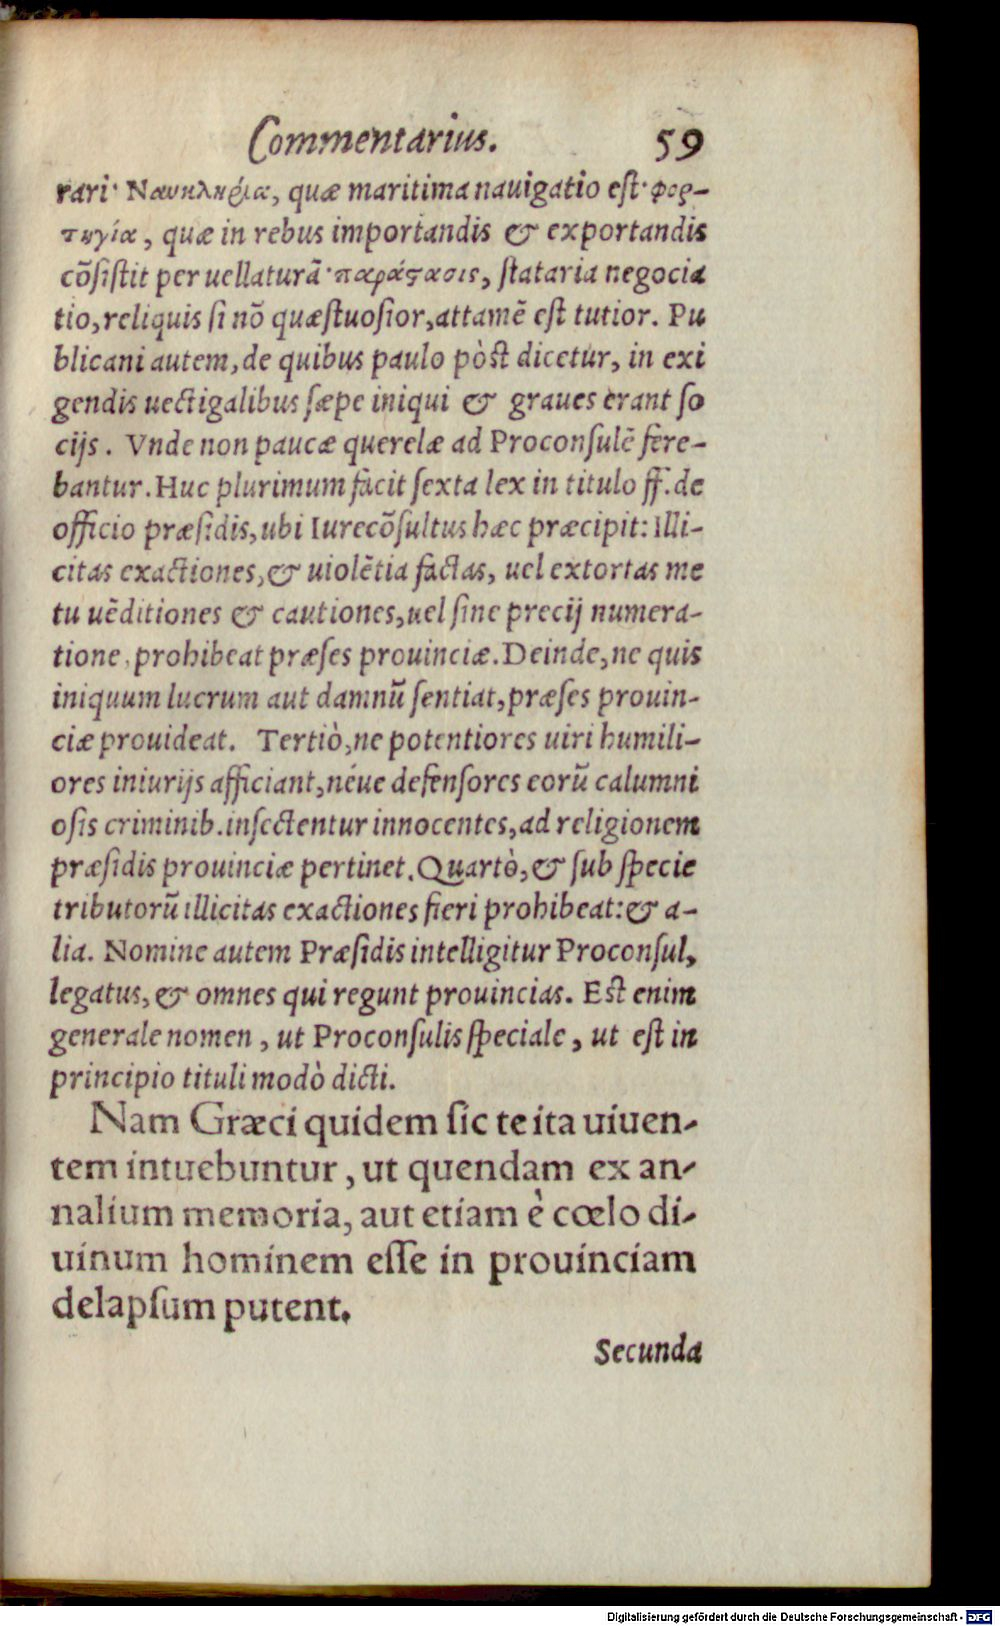 Commentarius. 59
rari· Ναυκληρία, quæ maritima nauigatio est· φορ-
τηγία, quæ in rebus importandis & exportandis
cōsistit per uellaturā· παράστασις, stataria negocia
tio, reliquis si nō quæstuosior, attamē est tutior. Pu
blicani autem, de quibus paulo pòst dicetur, in exi
gendis uectigalibus sæpe iniqui & graues erant so
cijs. Vnde non paucæ querelæ ad Proconsulē fere-
bantur. Huc plurimum facit sexta lex in titulo ff. de
officio præsidis, ubi Iurecōsultus hæc præcipit: Illi-
citas exactiones, & uiolētia factas, uel extortas me
tu uēditiones & cautiones, uel sine precij numera-
tione, prohibeat præses prouinciæ. Deinde, ne quis
iniquum lucrum aut damnū sentiat, præses prouin-
ciæ prouideat. Tertiò, ne potentiores uiri humili-
ores iniurijs afficiant, néue defensores eorū calumni
osis criminib. insectentur innocentes, ad religionem
præsidis prouinciæ pertinet. Quartò, & sub specie
tributorū illicitas exactiones fieri prohibeat: & a-
lia. Nomine autem Præsidis intelligitur Proconsul,
legatus, & omnes qui regunt prouincias. Est enim
generale nomen, ut Proconsulis speciale, ut est in
principio tituli modò dicti.
Nam Græci quidem sic te ita uiuen-
tem intuebuntur, ut quendam ex an-
nalium memoria, aut etiam è cœlo di-
uinum hominem esse in prouinciam
delapsum putent.
Secunda
Digitalisierung gefördert durch die Deutsche Forschungsgemeinschaft - DFG